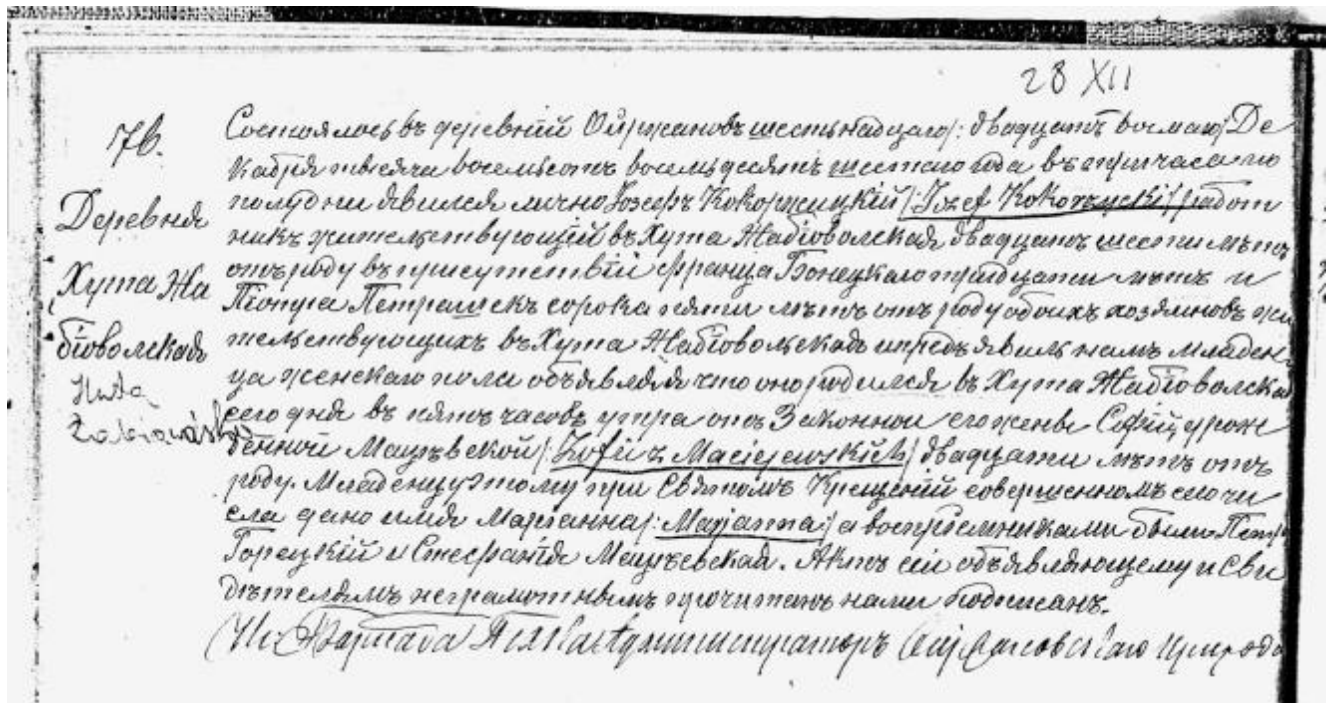 28 XII
76.
Деревня
Хута Жа
бiовольская
Huta
Żabiowolska
Состоялось въ деревнѣ шестьнадцаго /: двадцать восьмаго / Де
кабря тысяча восемьсотъ восемьдесятъ шестаго года въ три часа по
полудни явился лично Іозефъ Кокоржицкій /: Józef Kokorzycki / работ
никъ жительствующій въ Хута Жабіовольская двадцать шести лѣтъ
отъ роду въ присутствіи Франца Бонецкаго тридцати лѣтъ и
Піотра Петрашекъ сорока пяти лѣтъ отъ роду обоихъ хозяиновъ жи
тельствующихъ въ Хута Жабіовольская и предъявилъ намъ младен
ца женскаго пола объявляя что оно родился въ Хута Жабіовольская
сего дня въ пять часовъ утра отъ Законной его жены Софіи урож
денной Мацѣевской /: Zofii z Maciejewskich / двадцати лѣтъ отъ
роду. Младенцу этому при Святомъ Крещеніи совершенномъ сего чи
сла дано имя Маріанна /: Marjanna :/ а воспріемниками были Петръ
Горецкій и Стефанія Мацѣевская. Актъ сей объявляющему и Сви
дѣтелямъ неграмотнымъ прочитанъ нами подписанъ.
Администраторъ Прихода